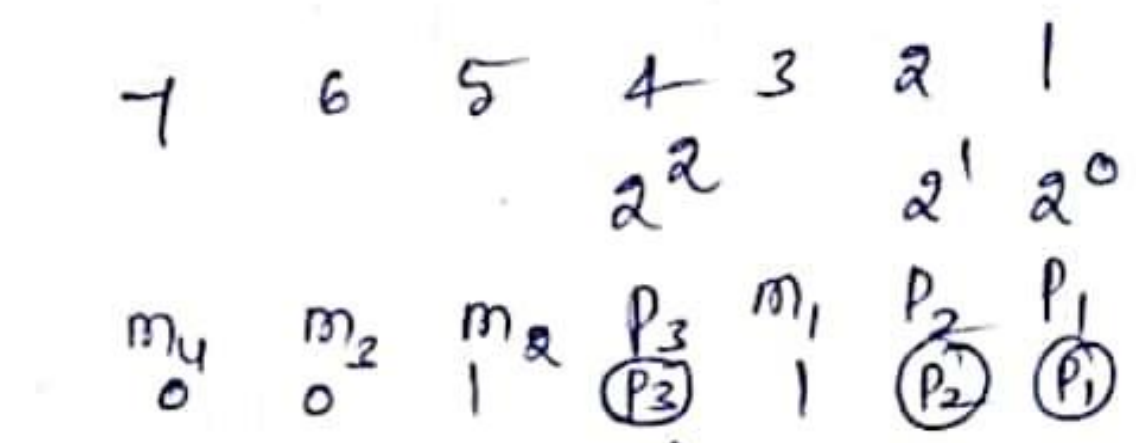 7 6 5 4 3 2 1
2² 2¹ 2⁰
m₄ m₃ m₂ P₃ m₁ P₂ P₁
0 0 1 P3 1 P₂ P₁